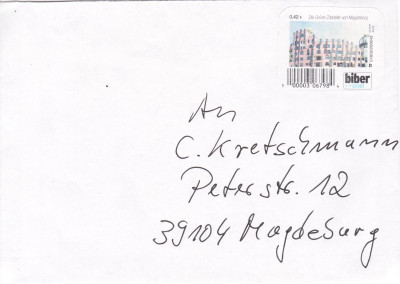 0,42 € Die Grüne Zitadelle von Magdeburg
biber
post
5 00003 06798
An
C. Kretschmann
Peterstr. 12
39104 Magdeburg